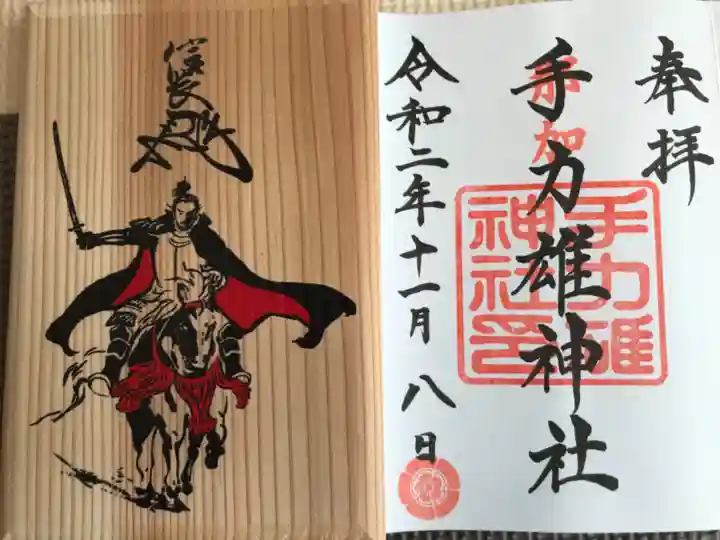 奉拝
手力雄神社
令和二年十一月八日
手力雄
神社印
信長